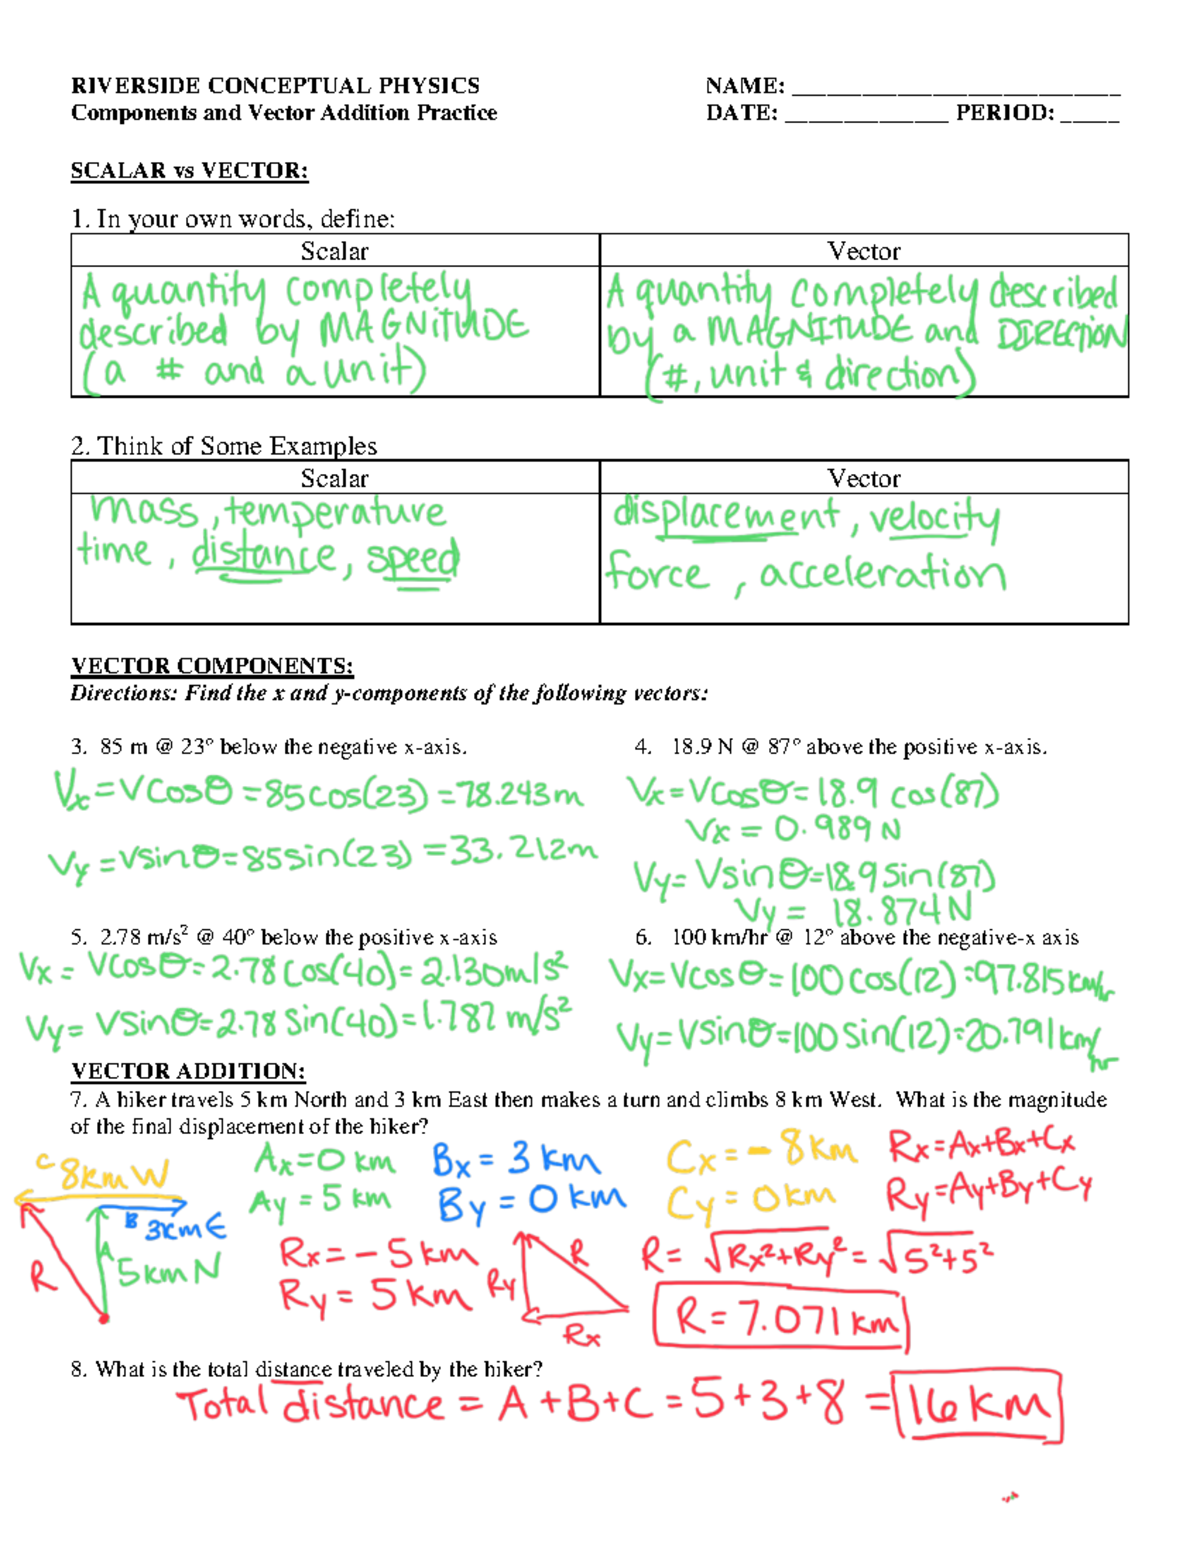 RIVERSIDE CONCEPTUAL PHYSICS NAME: ____________________________
Components and Vector Addition Practice DATE: ______________ PERIOD: _____
SCALAR vs VECTOR:
1. In your own words, define:
Scalar Vector
A quantity completely described by MAGNITUDE (a # and a unit)
A quantity completely described by a MAGNITUDE and DIRECTION (#, unit & direction)
2. Think of Some Examples
Scalar Vector
mass, temperature time, distance, speed
displacement, velocity force, acceleration
VECTOR COMPONENTS:
Directions: Find the x and y-components of the following vectors:
3. 85 m @ 23° below the negative x-axis.
Vx = VCosθ = 85cos(23) = 78.243m
Vy = Vsinθ = 85sin(23) = 33.212m
4. 18.9 N @ 87° above the positive x-axis.
Vx = VCosθ = 18.9 cos(87)
Vx = 0.989 N
Vy = Vsinθ = 18.9 sin(87)
Vy = 18.874 N
5. 2.78 m/s² @ 40° below the positive x-axis
Vx = VCosθ = 2.78 cos(40) = 2.130 m/s²
Vy = Vsinθ = 2.78 sin(40) = 1.787 m/s²
6. 100 km/hr @ 12° above the negative-x axis
Vx = VCosθ = 100 cos(12) = 97.815 km/hr
Vy = Vsinθ = 100 sin(12) = 20.791 km/hr
VECTOR ADDITION:
7. A hiker travels 5 km North and 3 km East then makes a turn and climbs 8 km West. What is the magnitude
of the final displacement of the hiker?
C 8km W
B 3km E
A 5km N
R
Ax = 0 km
Ay = 5 km
Bx = 3 km
By = 0 km
Cx = -8 km
Cy = 0 km
Rx = Ax+Bx+Cx
Ry = Ay+By+Cy
Rx = -5 km
Ry = 5 km
Ry R
Rx
R = √Rx²+Ry² = √5²+5²
R = 7.071 km
8. What is the total distance traveled by the hiker?
Total distance = A+B+C = 5+3+8 = 16 km